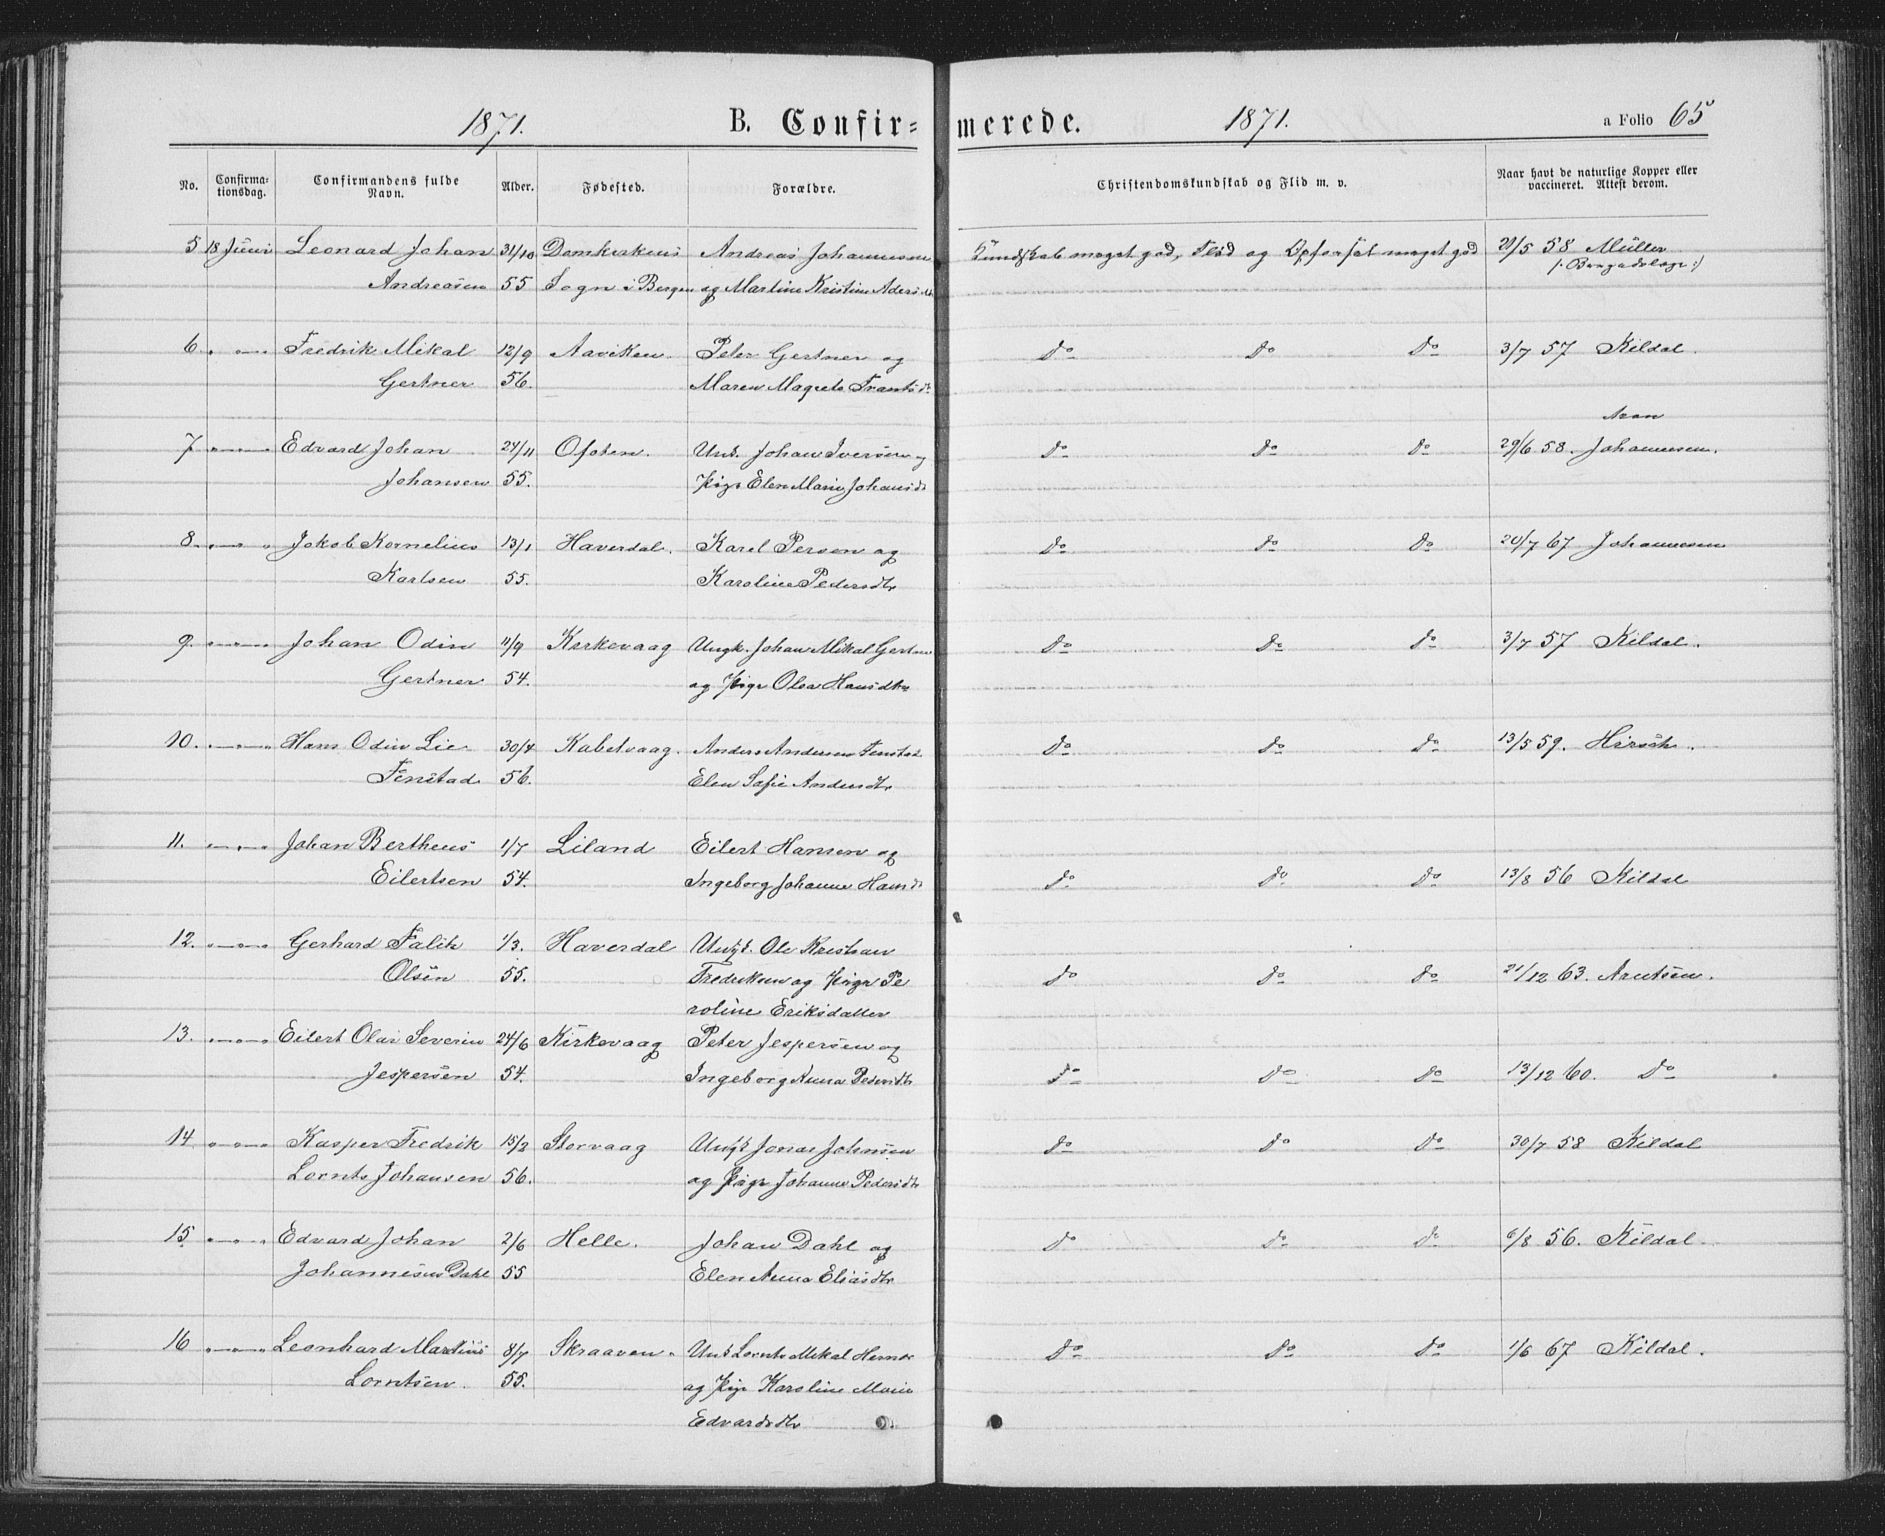 1871. B. Confir= merede. 1871. a Folio 65
No. Confirma-tionsdag. Confirmandens fulde Navn. Alder. Fødested. Forældre. Christendomskundskab og Flid m. v. Naar havt de naturlige Kopper eller vaccineret. Attest derom.
5 18 Juni Leonard Johan 31/10 Domkirkens Andreas Johannesen Kundskab meget god, Flid og Opførsel meget god 21/5 58 Müller
Andreasen 55 Sogn i Bergen og Martine Kristine
6. Fredrik Mikal 12/9 Aaviken. Peter Gertner og Do Do Do 3/7 57 Kildal.
Gertner 56. Maren Magrete Frantsdr
7 Edvard Johan 24/11 Ofoten. Johan Iversen og Do Do Do 29/6 58. Aron Johannesen.
Johansen 55. Pige Elen Marie Johansdr
8. Jakob Kornelius 13/1 Haverdal. Karel Persen og Do Do Do 20/7 67 Johannesen
Karlsen 55. Karoline Pedersdtr
9. Johan Odin 11/9 Kirkevaag Ungk. Johan Mikal Gertner Do Do Do 3/7 57 Kildal.
Gertner 54. og Pige Olea Hansdtr
10. Hans Odin Lie 30/4 Kabelvaag. Anders Andersen Finstad Do Do Do 13/5 59. Hirsch.
Finstad 56. Elen Sofie Andersdtr
11. Johan Bertheus 1/7 Liland Eilert Hansen og
Eilertsen 54. Ingeborg Johanne Hansdr Do Do Do 13/8 56 Kildal
12. Gerhard Falik 1/3. Haverdal Ungk. Ole Kristian
Olsen 55. Fredriksen og Pige Pe Do Do Do 21/12 63. Arntsen.
roline Eriksdatter
13. Eilert Olai Severin 24/6 Kirkevaag Peter Jespersen og
Jespersen 54. Ingeborg Anna Pedersdtr Do Do Do 13/12 60. Do
14 Kasper Fredrik 15/2 Storvaag Ungk Jonas Johnsen Do Do Do 30/7 58 Kildal
Lornts Johansen 56. og Pige Johanna Pedersdtr
15 Edvard Johan 2/6 Helle. Johan Dahl og Do Do Do 6/8 56. Kildal.
Johannesen Dahl 55 Elen Anna Eliasdtr
16 Leonhard Martius 8/7 Skraaven. Lornts Mikal Do Do Do 1/6 67 Kildal.
Lorntsen. 55. og Pige Karoline Marie
Edvardsdtr